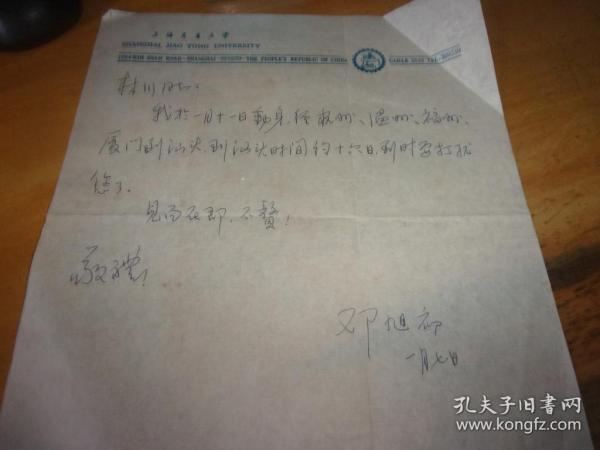 上海交通大学
SHANGHAI JIAO TONG UNIVERSITY
SHANGHAI THE PEOPLE'S REPUBLIC OF CHINA
林川同志:
我于一月十一日动身,经杭州、温州、福州、
厦门到汕头,到汕头时间约十六日,到时要打扰
您了。
见面在即,不赘!
敬礼!
邓旭初
一月七日
孔夫子旧书网
www.kongfz.com